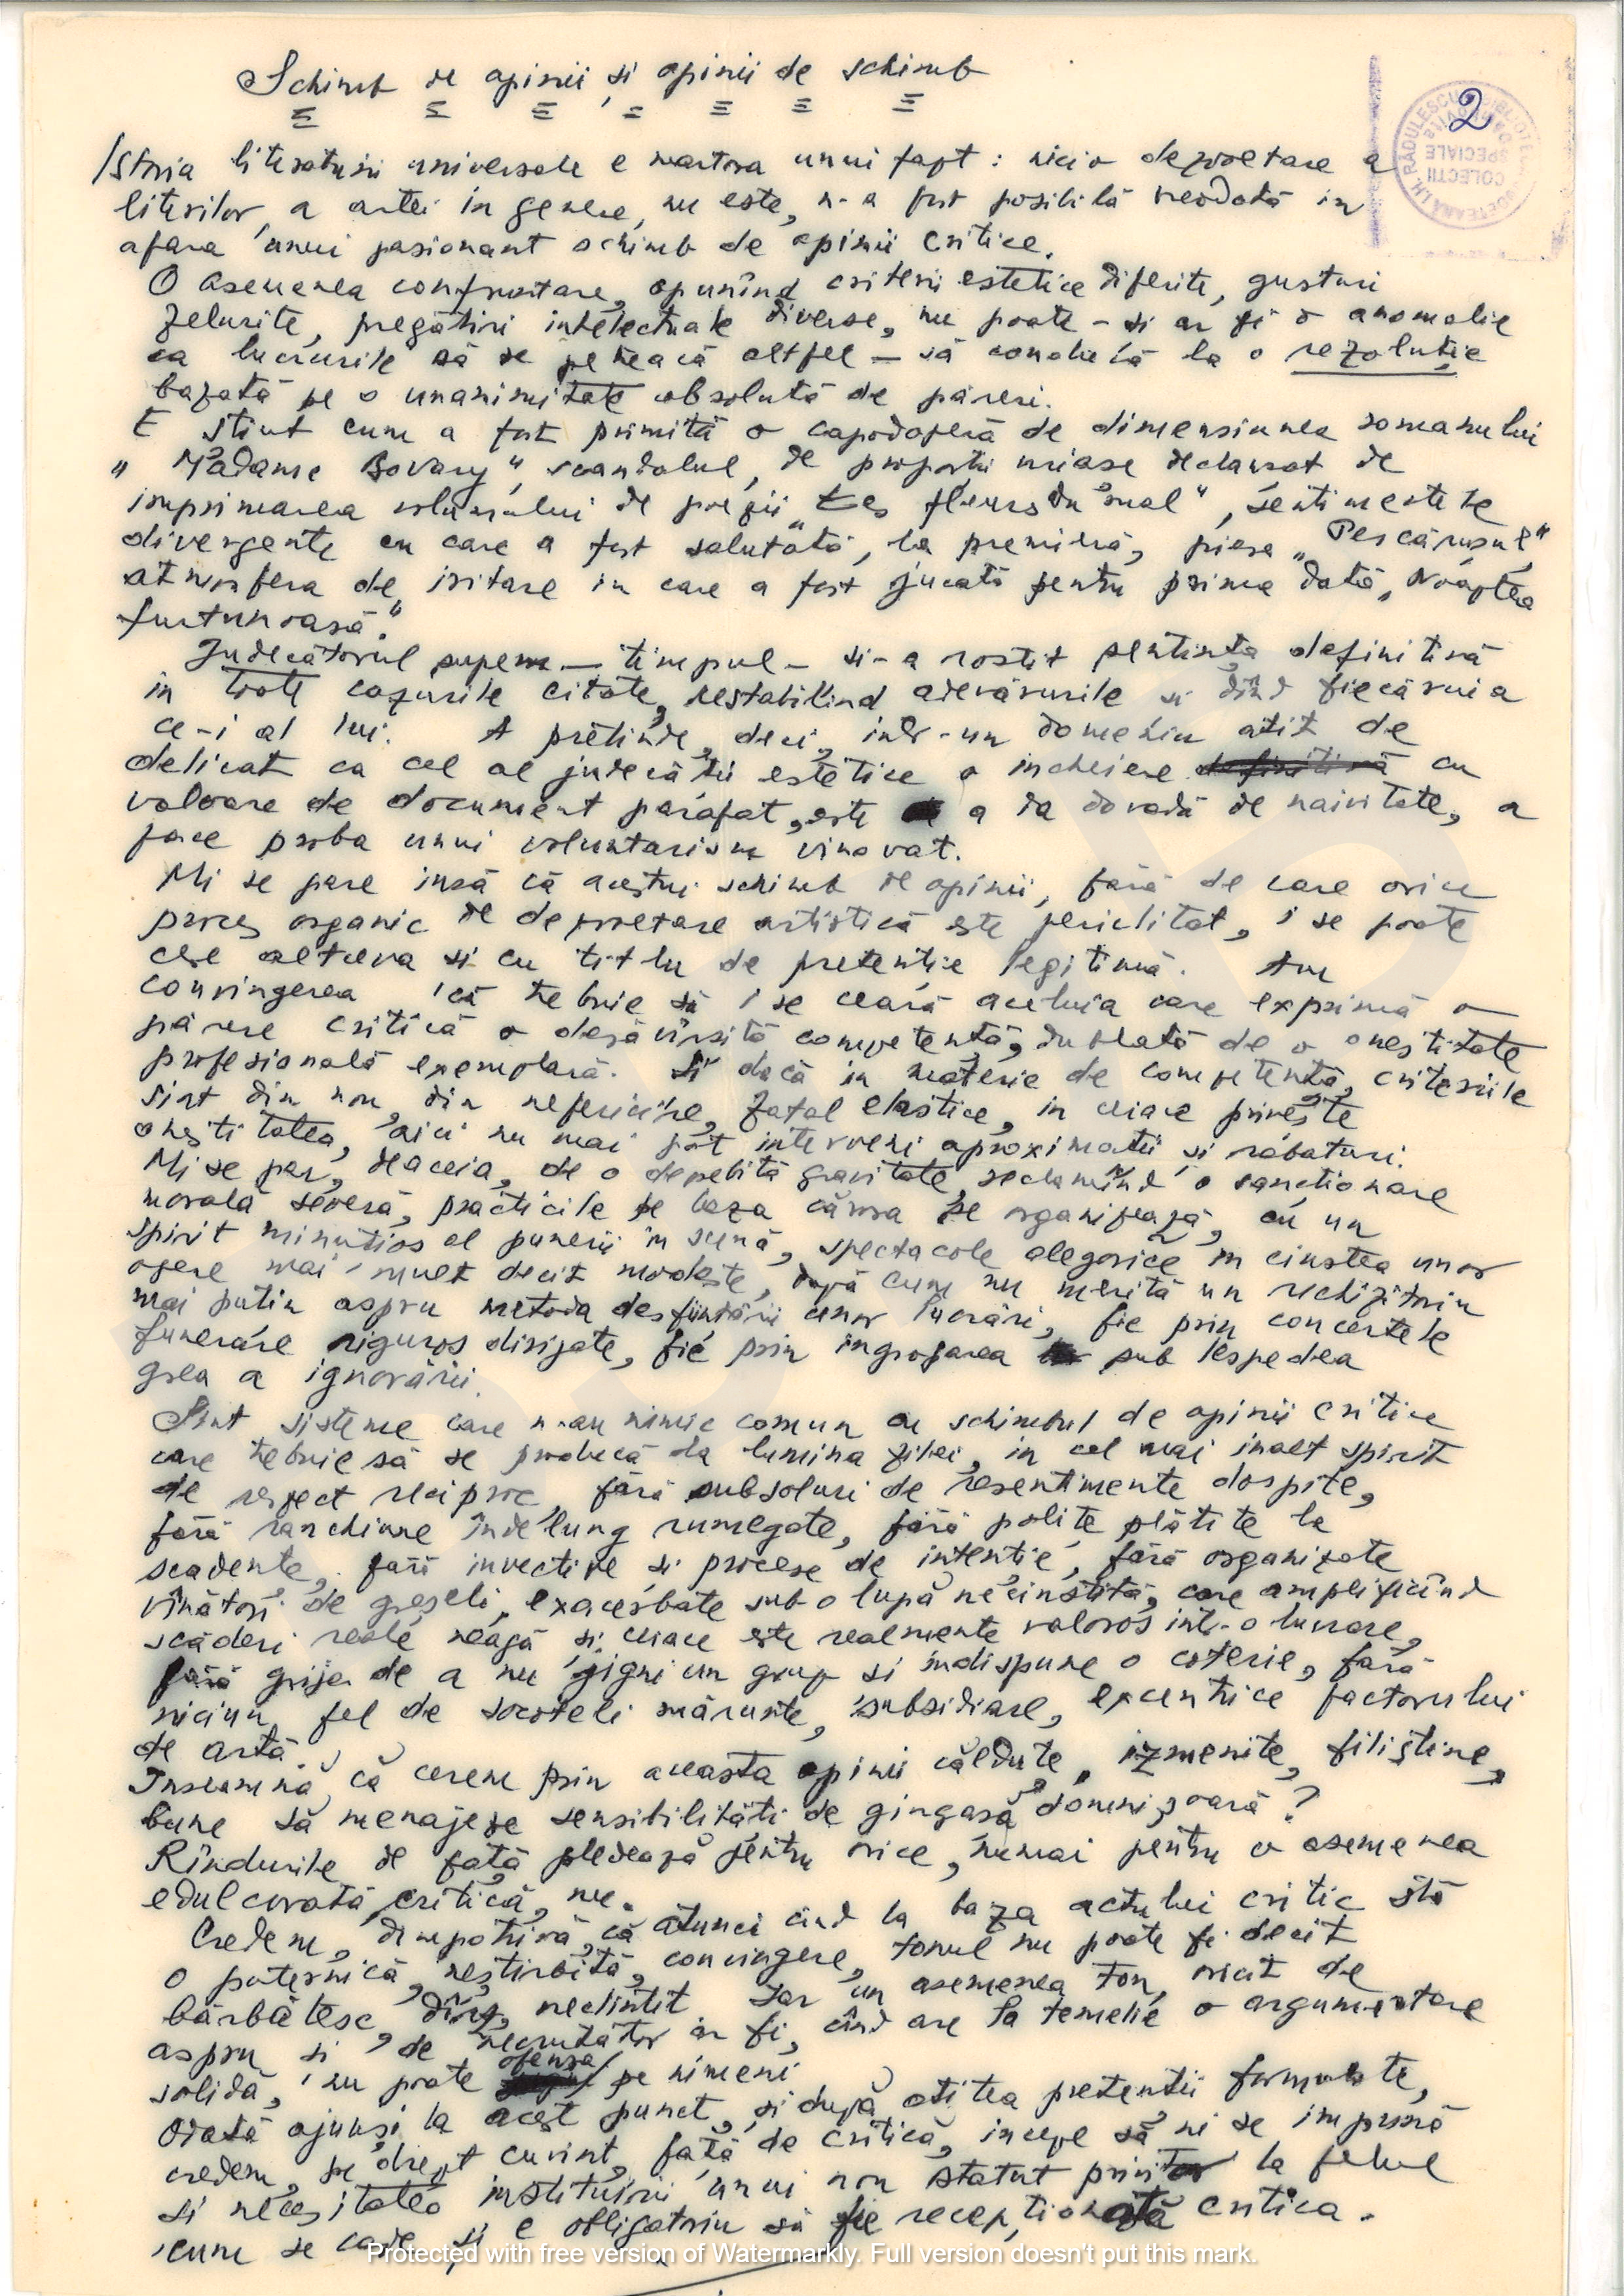 Schimb de opinii și opinii de schimb
2
Istoria literaturii universale e martora unui fapt: nicio dezvoltare a
literilor, a artei in genere, nu este, n-a fost posibilă vreodată in
afara unui pasionant schimb de opinii critice.
O asemenea confruntare, opunînd criterii estetice diferite, gusturi
felurite, pregătiri intelectuale diverse, nu poate - si ar fi o anomalie
ca lucrurile să se petreacă altfel - să conducă la o rezoluție
bazată pe o unanimitate absolută de păreri.
E știut cum a fost primită o capodoperă de dimensiunea romanului
„Madame Bovary", scandalul, de proporții uriase declansat de
imprimarea volumului de poezii „Les fleurs du mal", sentimentele
divergente cu care a fost salutată, la premieră, piesa „Pescărușul"
atmosfera de iritare in care a fost jucată pentru prima dată „Noaptea
furtunoasă."
Judecătorul suprem - timpul - si-a rostit sentința definitivă
in toate cazurile citate, restabilind adevărurile si dînd fiecăruia
ce-i al lui. A pretinde, deci, intr-un domeniu atît de
delicat ca cel al judecății estetice o incheiere cu
valoare de document parafat, este a da dovadă de naivitate, a
face proba unui voluntarism vinovat.
Mi se pare insă că acestui schimb de opinii, fără de care orice
proces organic de dezvoltare artistică este periclitat, i se poate
cere altceva si cu titlu de pretenție legitimă. Am
convingerea că trebuie să i se ceară aceluia care exprimă o
părere critică o desăvîrsită competență, dublată de o onestitate
profesională exemplară. Și dacă in materie de competență, criteriile
sint din nou, din nefericire, fatal elastice, in ceiace privește
onestitatea, aici nu mai pot interveni aproximații și rabaturi.
Mi se par, deaceia, de o deosebită gravitate, reclamînd o sancționare
morală severă, practicile pe baza cărora se organizează, cu un
spirit minuțios al punerii in scenă, spectacole alegorice in cinstea unor
opere mai mult decit modeste, după cum nu merită un rechizitoriu
mai putin aspru metoda desființării unor lucrări, fie prin concertele
funerare riguros dirijate, fie prin ingroparea sub lespedea
grea a ignorării.
Sint sisteme care n-au nimic comun cu schimbul de opinii critice
care trebuie să se producă la lumina zilei, in cel mai inalt spirit
de respect reciproc, fără subsoluri de resentimente dospite,
fără ranchiune îndelung rumegate, fără polițe plătite la
scadente, fără invective si procese de intentie, fără organizate
vînători de greșeli, exacerbate sub o lupă necinstită, care amplificînd
scăderi reale neagă și ceiace este realmente valoros intr-o lucrare,
fără grija de a nu jigni un grup si indispune o coterie, fără
niciun fel de socoteli mărunte, subsidiare, excentrice factorului
de artă.
Inseamnă că cerem prin aceasta opinii căldute, izmenite, filistine,
bune să menajeze sensibilități de gingasă domnișoară?
Rîndurile de față pledează pentru orice, numai pentru o asemenea
edulcorată critică, nu.
Credem, dimpotrivă, că atunci cind la baza actului critic stă
o puternică, neștirbită, convingere, tonul nu poate fi decit
bărbătesc, dîrz, neclintit. Iar un asemenea ton, oricit de
aspru și de necrutător ar fi, cînd are la temelie o argumentare
solidă, nu poate ofensa pe nimeni
Odată ajunsi la acest punct, si după atitea pretentii formulate,
credem, pe drept cuvint, față de critică, incepe să ni se impună
si necesitatea instituirii unui nou statut privitor la felul
cum se cade, și e obligatoriu să fie recepționată critica.
Protected with free version of Watermarkly. Full version doesn't put this mark.